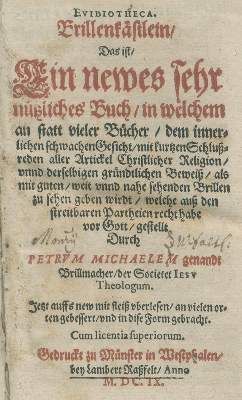 EVIBIOTHECA.
Brillenkästlein/
Das ist/
Ein newes sehr
nützliches Buch/ in welchem
an statt vieler Bücher/ dem inner-
lichen schwachen Gesicht/ mit kurtzen Schluß-
reden aller Artickel Christlicher Religion/
vnnd derselbigen gründtlichen Beweiß/ als
mit guten/ weit vnnd nahe sehenden Brillen
zu sehen geben wirdt/ welche auß den
streitbaren Partheien recht habe
vor Gott/ gestellt
Durch
PETRVM MICHAELEM genandt
Brillmacher/ der Societet IESV
Theologum.
Jetzt auffs new mit fleiß vberlesen/ an vielen or-
ten gebessert/ vnd in dise Form gebracht.
Cum licentia superiorum.
Gedruckt zu Münster in Westphalen/
bey Lambert Raßfelt/ Anno
M. DC. IX.